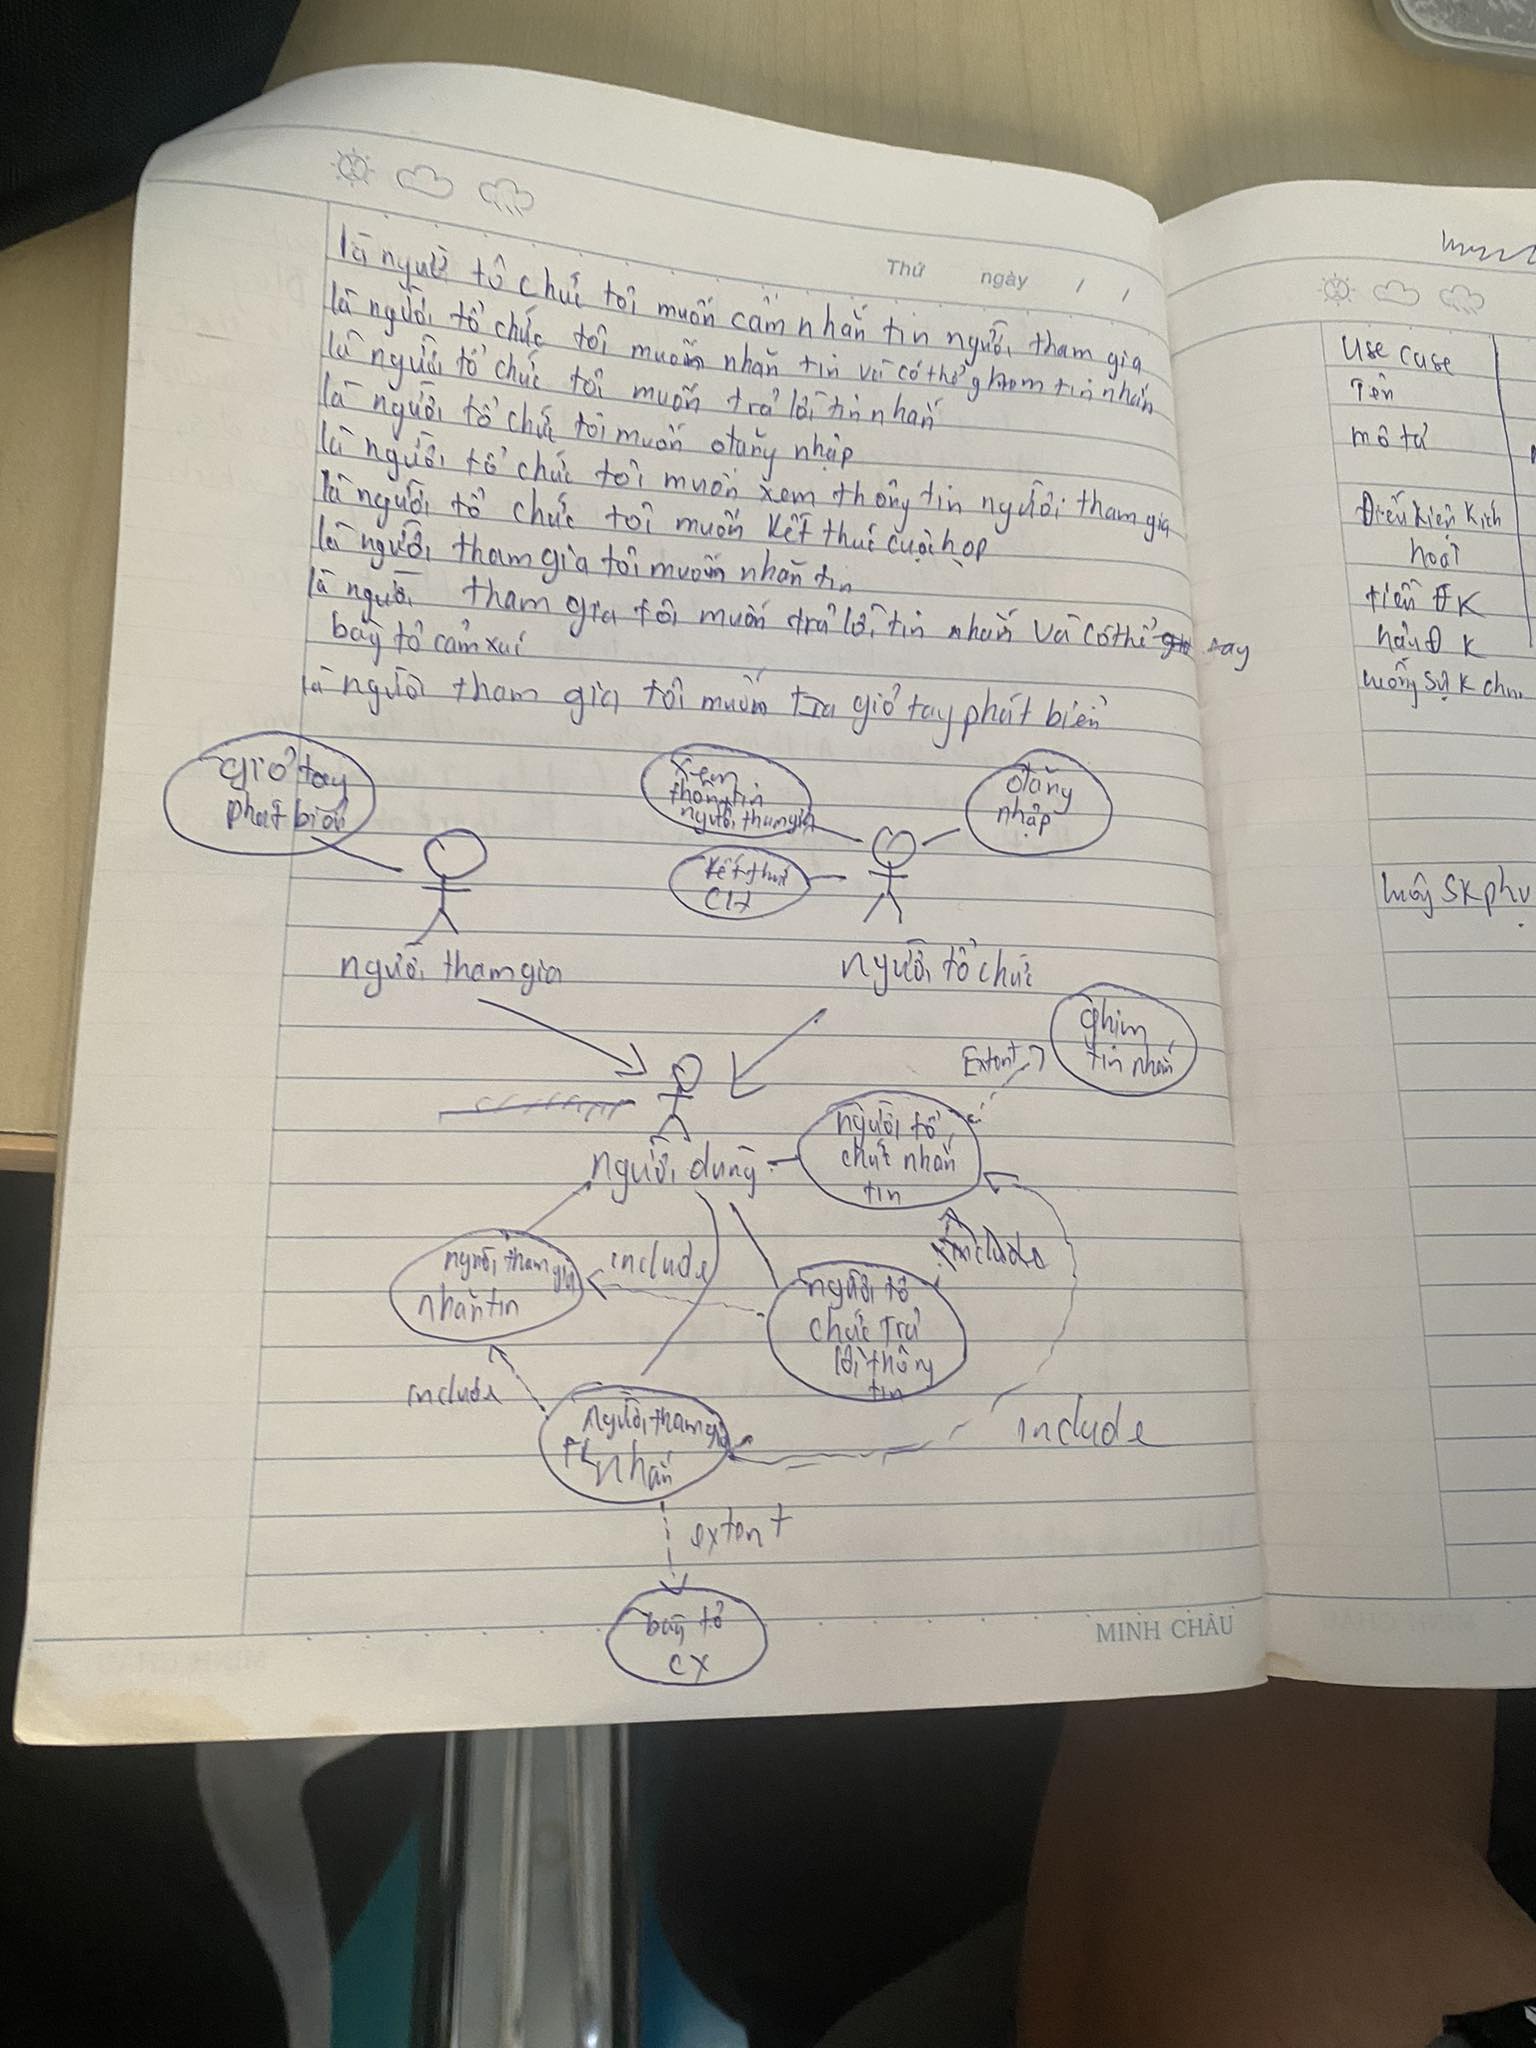 Thứ ngày / /
là người tổ chức tôi muốn cấm nhắn tin người tham gia
là người tổ chức tôi muốn nhắn tin và có thể ghim tin nhắn
là người tổ chức tôi muốn trả lời tin nhắn
là người tổ chức tôi muốn đăng nhập
là người tổ chức tôi muốn xem thông tin người tham gia
là người tổ chức tôi muốn kết thúc cuộc họp
là người tham gia tôi muốn nhắn tin
là người tham gia tôi muốn trả lời tin nhắn và có thể
bày tỏ cảm xúc
là người tham gia tôi muốn giơ tay phát biểu
giơ tay
phát biểu
xem
thông tin
người tham gia
đăng
nhập
kết thúc
người tham gia
người tổ chức
ghim
tin nhắn
Extent
người tổ
chức nhắn
tin
người dùng
người tham gia
nhắn tin
include
include
người tổ
chức trả
lời thông
tin
include
người tham gia
nhắn
include
extent
bày tỏ
CX
MINH CHÂU
Use case
Tên
mô tả
Điều kiện kích
hoạt
tiền ĐK
hậu ĐK
luồng SK
luồng SK phụ